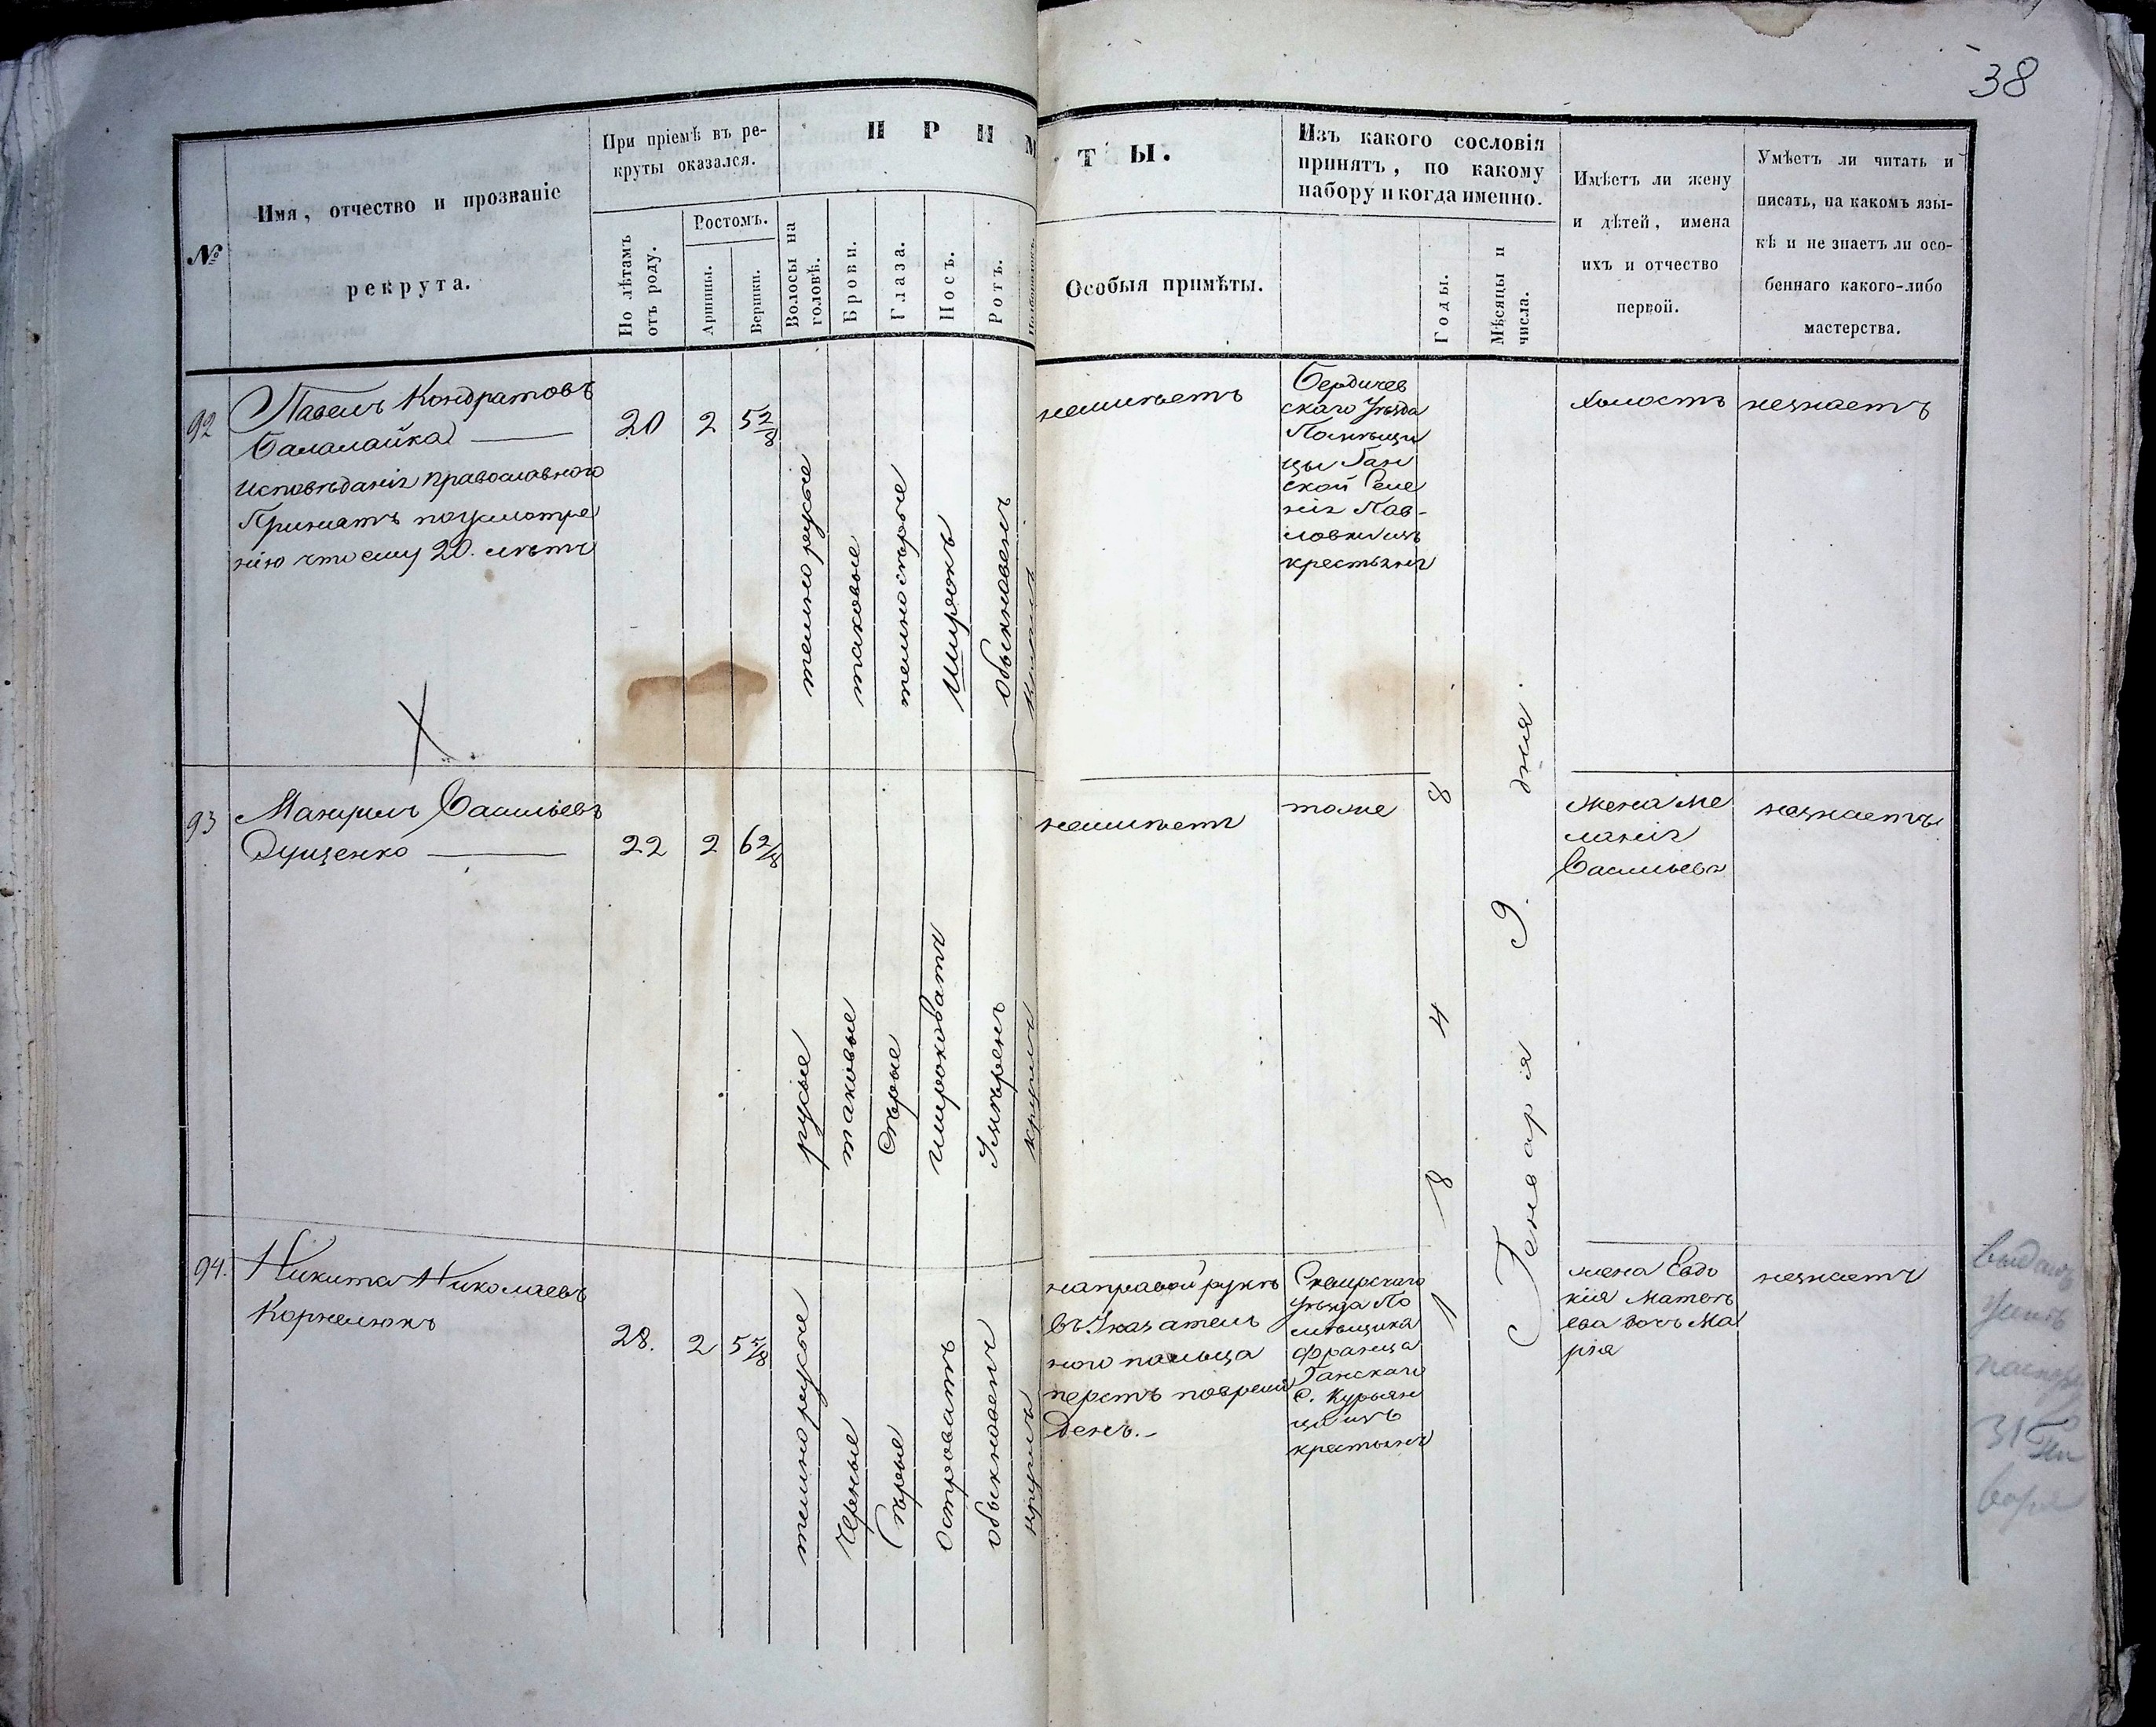 38
№
Имя, отчество и прозваніе
рекрута.
При пріемѣ въ ре-
круты оказался.
По лѣтамъ
отъ роду.
Ростомъ.
Аршины.
Вершки.
П Р И М
Волосы на
головѣ.
Брови.
Глаза.
Носъ.
Ротъ.
Т Ы.
Особыя примѣты.
Изъ какого сословія
принятъ, по какому
набору и когда именно.
Годы.
Мѣсяцы и
числа.
Имѣетъ ли жену
и дѣтей, имена
ихъ и отчество
первой.
Умѣетъ ли читать и
писать, на какомъ язы-
кѣ и не знаетъ ли осо-
беннаго какого-либо
мастерства.
92
Павелъ Кондратовъ
Балалайка
исповѣданія православного
Принятъ поусмотре
нію что ему 20. лѣтъ
20
2
5 2/8
темнорусые
таковые
темносѣрые
широкъ
обыкновенъ
неимѣетъ
Бердичев
скаго Уѣзда
Помѣщи
цы Ган
ской Селе
нія Пав-
ловки изъ
крестьянъ
холостъ
незнаетъ
93
Василіевъ
Дущенко
22
2
6 2/8
русые
таковые
Сѣрые
широковатъ
Умѣренъ
круглъ
неимѣетъ
тоже
1848
Генваря 9. дня.
жена Ме
ланія
Василіева
незнаетъ
94.
Никита Николаевъ
Корнелюкъ
28.
2
5 5/8
темнорусые
Черные
Сѣрые
островатъ
обыкновенъ
круглъ
направой рукѣ
въ Указатель
ного пальца
перстъ повреж
денъ.-
Сквирского
уѣзда По
мѣщика
Франца
Ганскаго
с. Курьян
цы изъ
крестьянъ
жена Евдо
кия Матвѣ
ева дочь Ма
рія
незнаетъ
31